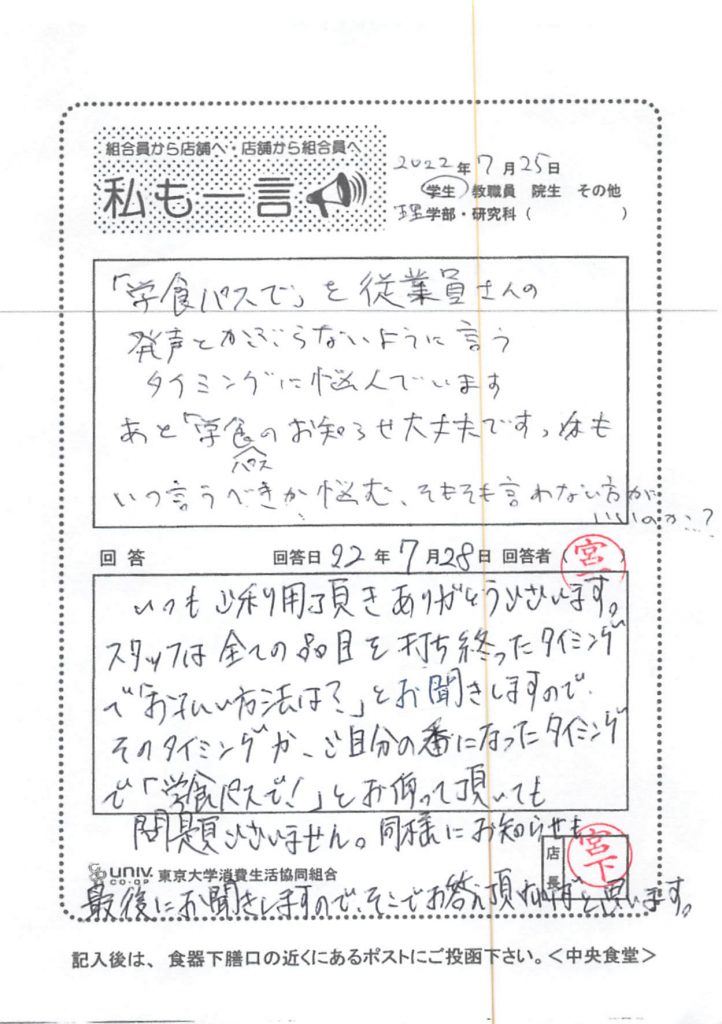 組合員から店舗へ・店舗から組合員へ
私も一言
2022年7月25日
学生 教職員 院生 その他
理学部・研究科( )
「学食パスで」を従業員さんの
発声とかぶらないように言う
タイミングに悩んでいます
あと「学食のお知らせ大丈夫です」も
パス
いつ言うべきか悩む、そもそも言わない方が
いいのか…?
回答 回答日 22年7月28日 回答者( 宮下 )
いつもご利用頂きありがとうございます。
スタッフは全ての品目を打ち終ったタイミング
で「お支払い方法は?」とお聞きしますので、
そのタイミングか、ご自分の番になったタイミング
で「学食パスで!」とお仰って頂いても
問題ございません。同様にお知らせも
店長 宮下
univ. co-op 東京大学消費生活協同組合
最後にお聞きしますので、そこでお答え頂ければと思います。
記入後は、食器下膳口の近くにあるポストにご投函下さい。<中央食堂>